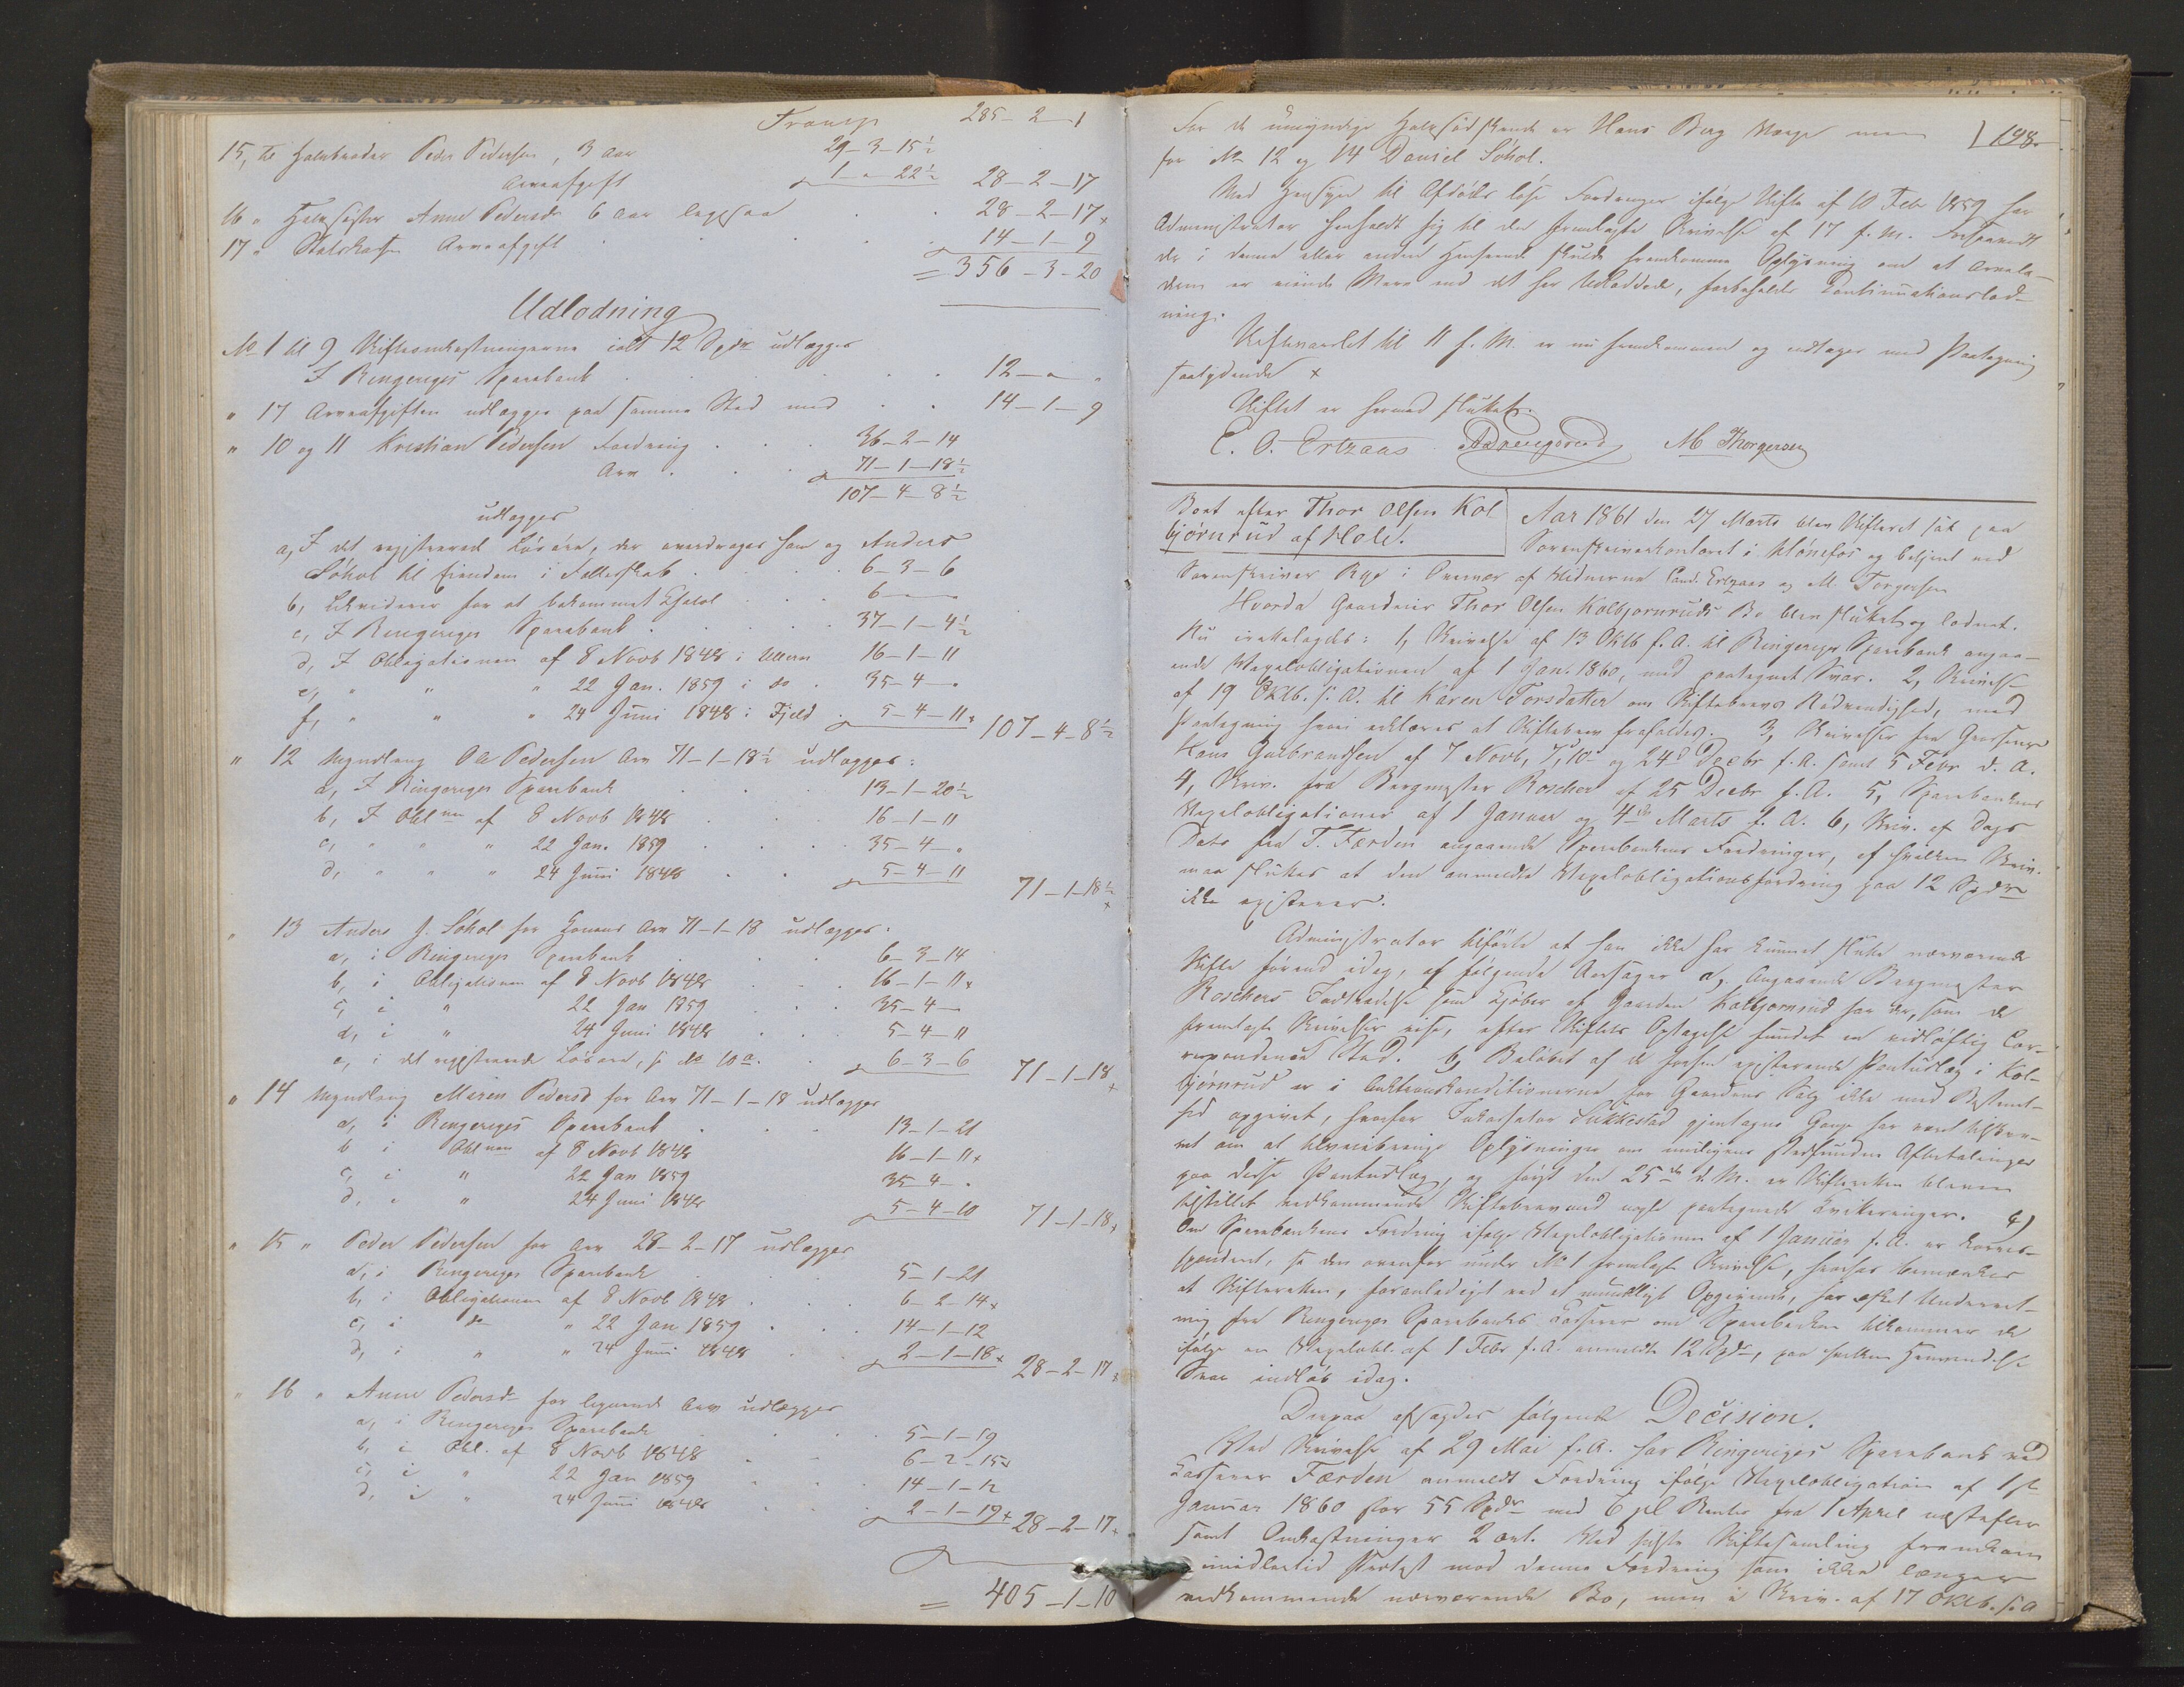 Transp 285-2-1
15, til Halvbroder Peder Pedersen, 3 Aar 29-3-15½
Arveafgift 1-"-22½ 28-2-17
16 " Halvsøster Anne Pedersdr 6 Aar ligesaa 28-2-17
17 " Statskassen Arveafgift 14-1-9
= 356-3-20
Udlodning
No 1 til 9 Skifteomkostningerne ialt 12 Spdr udlægges
I Ringeriges Sparebank 12-"-"
" 17 Arveafgiften udlægges paa samme Sted med 14-1-9
" 10 og 11 Kristian Pedersen Fordring 36-2-14
Arv 71-1-18½
107-4-8½
udlægges
a, I det registrerede Løsøre, der overdrages ham og Anders
Søhol til Eiendom i Fællesskab 6-3-6
b, Likviderer for at bekommet 6
c, I Ringeriges Sparebank 37-1-4½
d, I Obligationen af 8 Novb 1848 i Ullern 16-1-11
e, " " " 22 Jan. 1859 i do 35-4-"
f, " " " 24 Juni 1848 i Fjeld 5-4-11 107-4-8½
" 12 Myndling Ole Pedersen Arv 71-1-18½ udlægges:
a, I Ringeriges Sparebank 13-1-20½
b, I Oblnen af 8 Novb 1848 16-1-11
c, " " " 22 Jan. 1859 35-4-"
d, " " " 24 Juni 1848 5-4-11 71-1-18½
" 13 Anders J. Søhol for Konens Arv 71-1-18 udlægges.
a, i Ringeriges Sparebank 6-3-14
b, i Obligationen af 8 Novb 1848 16-1-11
c, i " 22 Jan 1859 35-4-
d, i " 24 Juni 1848 5-4-11
e, i det registrerede Løsøre, jf No 10a. 6-3-6 71-1-18
" 14 Myndling Maren Pedersd for Arv 71-1-18 udlægges
a, i Ringeriges Sparebank 13-1-21
b i Oblnen af 8 Novb 1848 16-1-11
c, i " 22 Jan 1859 35-4-"
d, i " 24 Juni 1848 5-4-10 71-1-18
" 15 " Peder Pedersen for Arv 28-2-17 udlægges
a, i Ringeriges Sparebank 5-1-21
b, i Obligationen af 8 Novb 1848 6-2-14
c, i do " 22 Jan 1859 14-1-12
d, i " " 24 Juni 1848 2-1-18 28-2-17
" 16 " Anne Pedersdr for lignende Arv udlægges
a, i Ringeriges Sparebank 5-1-19
b, i Obl. af 8 Novb 1848 6-2-15
c, i " 22 Jan 1859 14-1-12
d, i " 24 Juni 1848 2-1-19 28-2-17
= 405-1-10
198.
For de umyndige Halvsødskende er Hans Berg Værge men
for No 12 og 14 Daniel Søhol.
Med Hensyn til Afdødes løse Fordringer ifølge Skifte af 10 Febr 1859 har
Administrator henholdt sig til den fremlagte Skrivelse af 17 f. M. Forsaavidt
der i denne eller anden Henseende skulde fremkomme Oplysning om at Arvela-
deren er eiende Mere end det her Udloddede, forbeholdes Continuationslod-
ning.
Skiftevarslet til 11 f. M. er nu fremkommen og vedtages med Paategning
saalydende x
Skiftet er hermed sluttet.
C. O. Ertzaas M Thorgersen
Boet efter Thor Olsen Kol
bjørnrud af Hole.
Aar 1861 den 27 Marts blev Skifteret sat paa
Sorenskriverkontoret i Hønefos og betjent ved
Sorenskriver Rye i Overvær af Vidnerne Cand. Ertzaas og M. Torgersen
Hvorda Gaardeier Thor Olsen Kolbjørnruds Bo blev sluttet og loddet.
Nu irettelagdes: 1, Skrivelse af 13 Oktb f. A. til Ringeriges Sparebank angaa-
ende Vexelobligationen af 1 Jan. 1860, med paategnet Svar. 2, Skrivelse
af 19 Oktb. f. A. til Karen Torsdatter om Skiftebrevs Nødvendighed, med
Paategning hvori erklæres at Skiftebrev frafaldes. 3, Skrivelser fra
Hans Gulbrandsen af 7 Novb, 7, 10de og 24d Decbr f. A. samt 5 Febr d. A.
4, Skriv. fra Bergmester Roscher af 25 Decbr f. A. 5, Sparebankens
Vexelobligationer af 1 Januar og 4de Marts f. A. 6, Skriv. af Dags
Dato fra T. Færden angaaende Sparebankens Fordringer, af hvilken Skriv.
maa sluttes at den anmeldte Vexelobligationsfordring paa 12 Spdr
ikke existerer.
Administrator tilførte at han ikke har kunnet slutte nærværende
Skifte førend idag, af følgende Aarsager a, Angaaende Bergmester
Roschers Indtrædelse som Kjøber af Gaarden Kolbjørnrud har der, som de
fremlagte Skrivelser vise, efter Skiftets Optagelse fundet en vidløftig Cor-
respondence Sted. b, Beløbet af de forhen existerende Pantudlæg i Kol-
bjørnrud er i Auktionskonditionerne for Gaardens Salg ikke med Bestemt-
hed opgivet, hvorfor Inkassator Sukkestad gjentagne Gange har været tilskre-
vet om at tilveiebringe Oplysninger om muligens stedfundne Afbetalinger
paa disse Pantudlæg, og først den 25de d. M. er Skifteretten bleven
tilstillet vedkommende Skiftebrev med nogle paategnede Kvitteringer. c)
Om Sparebankens Fordring ifølge Vexelobligationen af 1 Januar f. A. er korres-
ponderet, se den ovenfor under No 1 fremlagte Skrivelse, hvorhos bemærkes
at Skifteretten, foranlediget ved et mundtligt Opgivende, har æsket Underret-
ning fra Ringeriges Sparebanks Kasserer om Sparebanken tilkommer de
ifølge en Vexelobl. af 1 Febr f. A. anmeldte 12 Spdr, paa hvilken Henvendelse
Svar indløb idag.
Derpaa afsagdes følgende Decision.
Ved Skrivelse af 29 Mai f. A. har Ringeriges Sparebank ved
Kasserer Færden anmeldt Fordring ifølge Vexelobligation af 1ste
Januar 1860 stor 55 Spdr med 6 pCt Renter fra 1 April næstefter
samt Omkostninger 2 ort. Ved sidste Skiftesamling fremkom
imidlertid Protest mod denne Fordring som ikke længer
vedkommende nærværende Bo, men i Skriv. af 17 Oktb. f. A